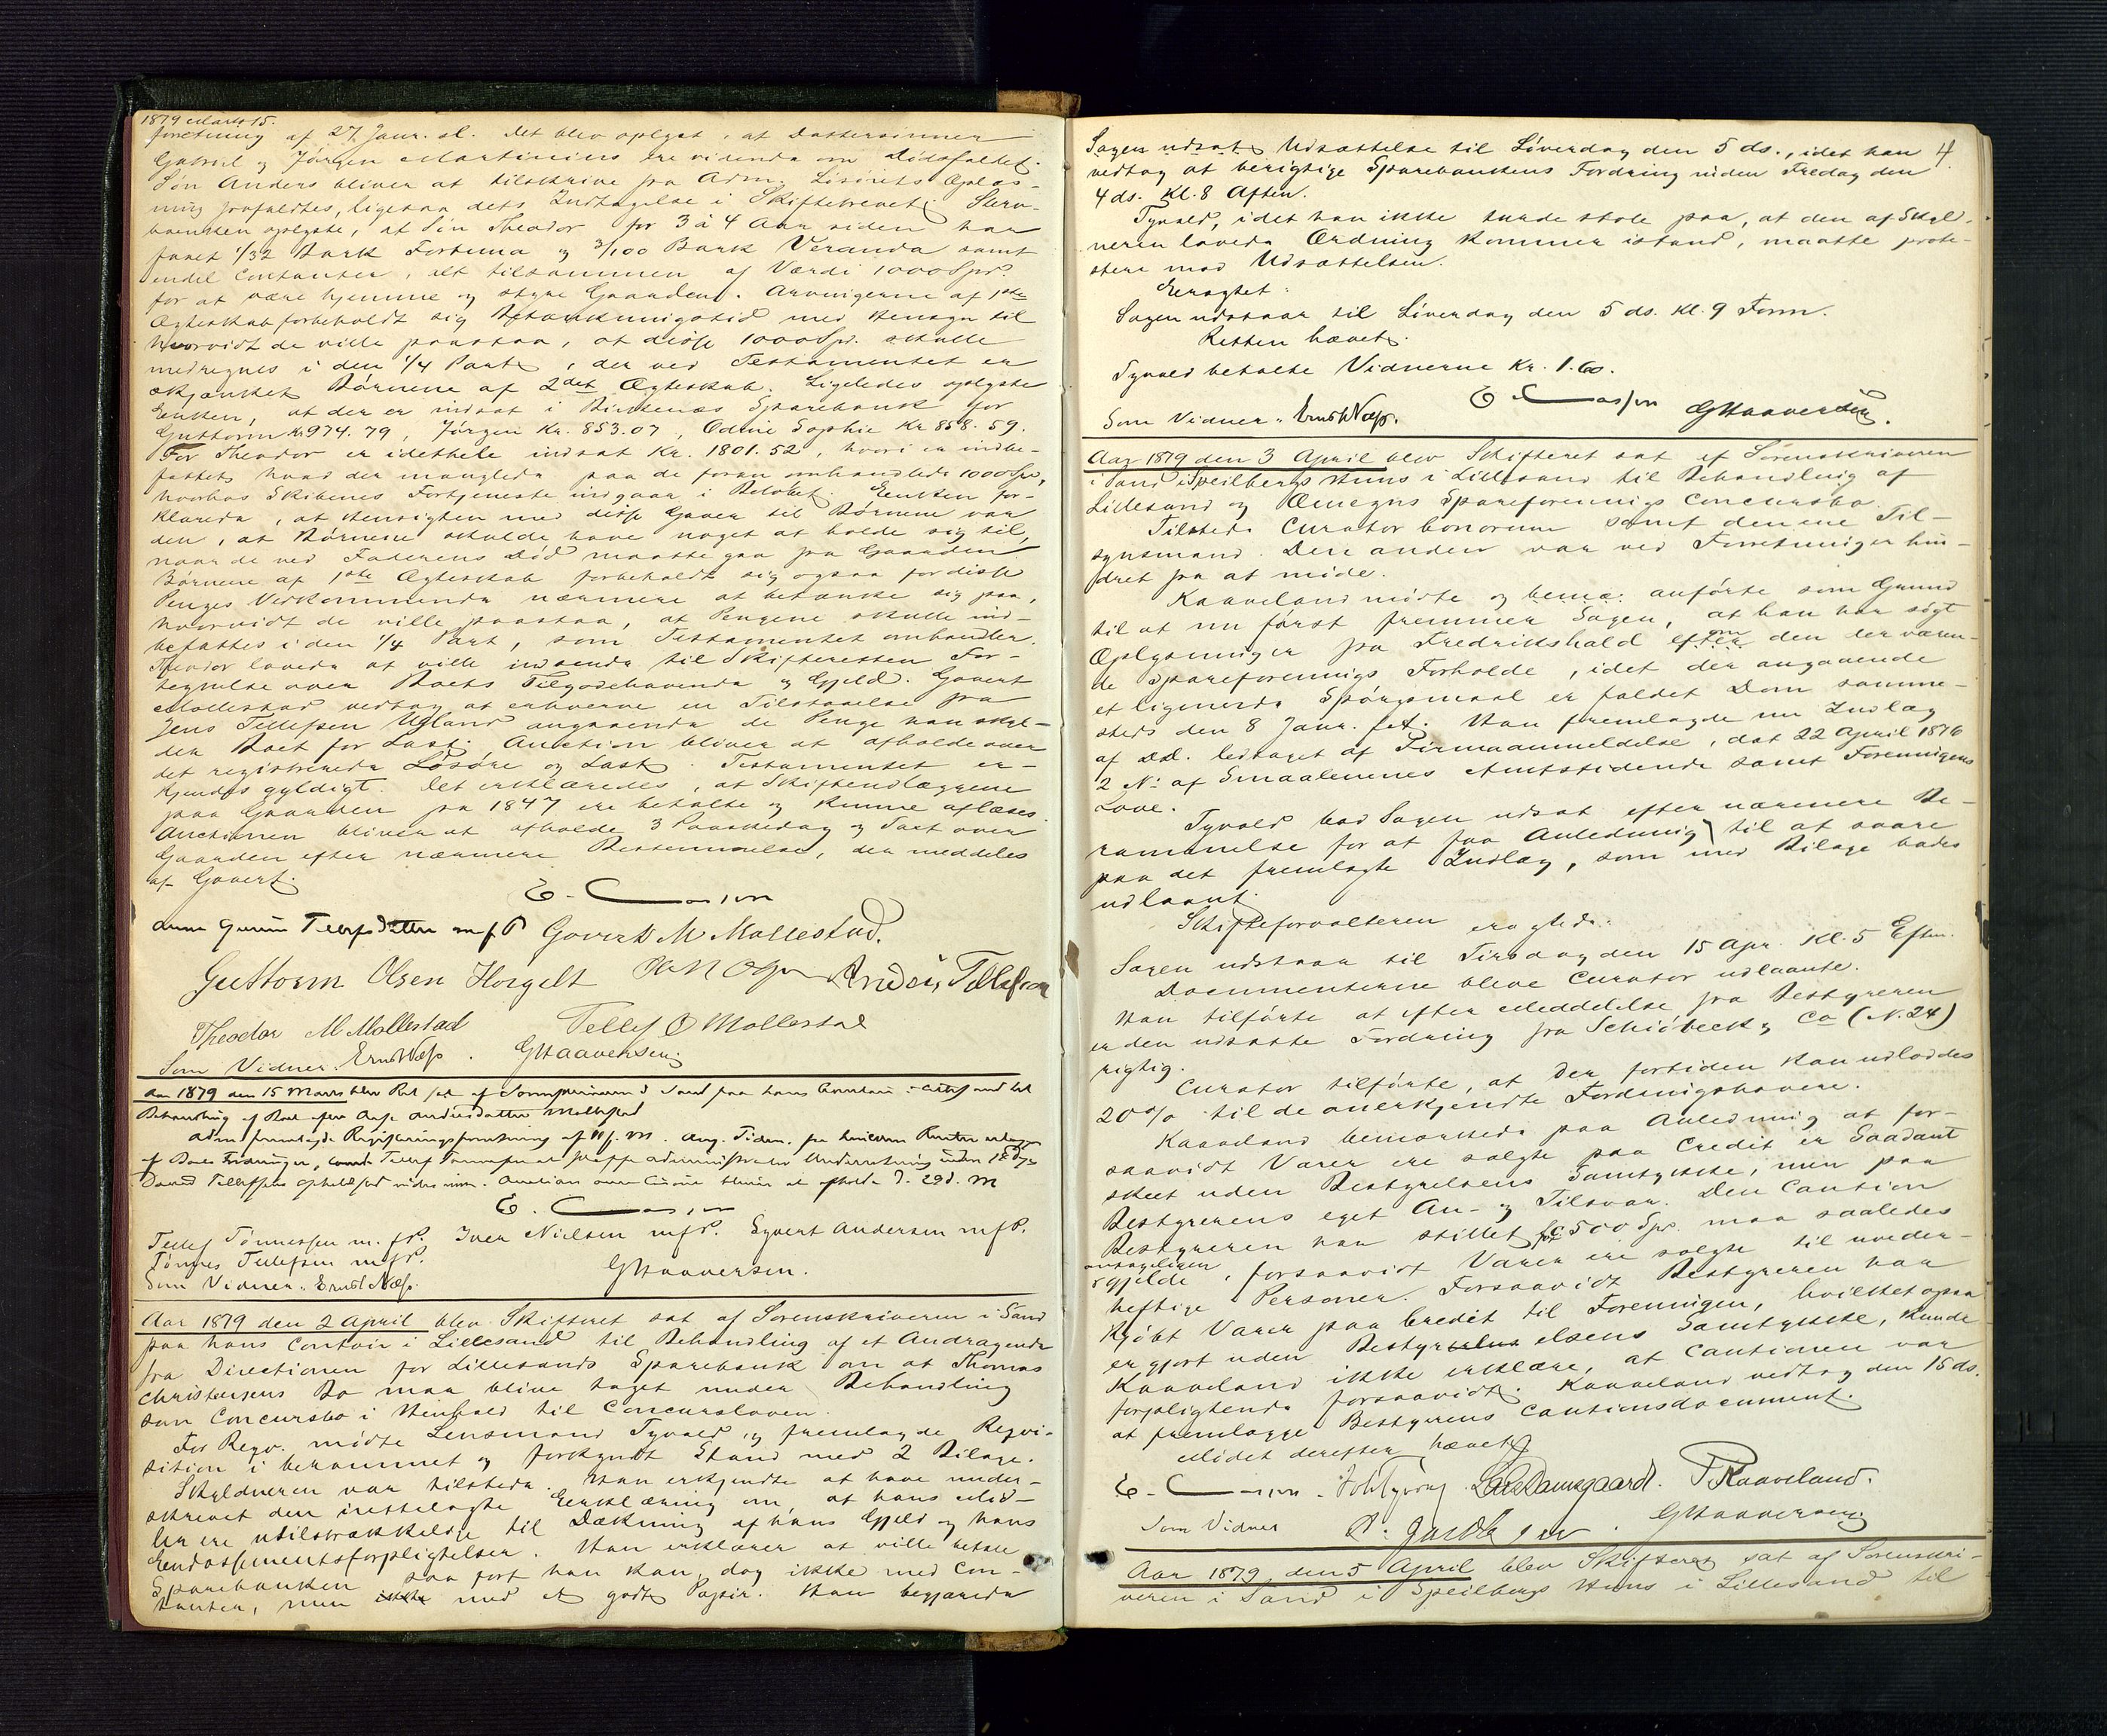 1879 Marts 15.
forretning af 27. Janr. sl. Det blev oplyst, at Dattersønnen
Gabriel og Jörgen Martinius ere vidende om Dödsfaldet.
Sön Anders bliver at tilskrive fra Adm. Lösörets Oplæs-
ning frafaldtes, ligesaa dets Indtagelse i Skiftebrevet. Sterv-
boenken oplyste, at Sön Theodor for 3 à 4 Aar siden har
faaet 1/32 Bark Fortuna og 3/100 Bark Veranda samt
endel Contanter, alt tilsammen af Værdi 1000 Spd.
for at være hjemme og styre Gaarden. Arvingerne af 1ste
Ægteskab forbeholdt sig Betænkningstid med Hensyn til
hvorvidt de ville paastaa, at disse 1000 Spd. skulle
medregnes i den 1/4 Part, der ved Testamentet er
skjænket Börnene af 2det Ægteskab. Ligeledes oplyste
Enken, at der er indsat i Birkenæs Sparebank for
Guttorm Kr 974.79, Jörgen Kr. 853.07, Odine Sophie Kr 858.59.
For Theodor er idethele indsat Kr. 1801.52, hvori er indbe-
fattet hvad der manglede paa de foran omhandlede 1000 Spd,
hvorhos Skibenes Fortjeneste indgaar i Belöbet. Enken for-
klarede, at Hensigten med disse Gaver til Börnene var
den, at Börnene skulde have noget at holde sig til,
naar de ved Faderens Död maatte gaa fra Gaarden
Börnene af 1ste Ægteskab forbeholdt sig ogsaa for disse
Penges Vedkommende nærmere at betænke sig paa,
hvorvidt de ville paastaa, at Pengene skulle ind-
befattes i den 1/4 Part, som Testamentet omhandler.
Theodor lovede at ville indsende til Skifteretten For-
tegnelse over Boets Tilgodehavende og Gjeld. Govert
Mollestad vedtog at erhverve en Tilstaaelse fra
Jens Tellefsen Ugland angaaende de Penge han skyl-
der Boet for Last. Auction bliver at afholde over
det registrerede Lösöre og Last. Testamentet er-
kjendes gyldigt. Det erklæredes, at Skifteudlæggene
paa Gaarden fra 1847 ere betalte og kunne aflæses.
Auctionen bliver at afholde 3 Paaskedag og Taxt over
Gaarden efter nærmere Bestemmelse, der meddeles
af Govert.
E. C
Anna Gurine Tellefsdatter m.f.P Govert M Mollestad.
Guttorm Olsen Anders Tellefsen
Theodor M Mollestad Tellef O Mollestad
Som Vidner: Ernst Næss. GHaaversen.
Aar 1879 den 15 Marts blev Ret sat af Sorenskriveren i Sand paa hans Contoir i Lillesand til
Behandling af Boet efter Aase Andersdatter Mollestad
Adm fremlagde Registreringsforretning af 11 f. M. Ang. Tiden
E. C
Tellef Tönnessen m.f.P. Iver Nielsen mfP. Syvert Andersen mfP.
Tönnes Tellefsen mfP.
Som Vidner: Ernst Næss. GHaaversen.
Aar 1879 den 2 April blev Skifteret sat af Sorenskriveren i Sand
paa hans Contoir i Lillesand til Behandling af et Andragende
fra Directionen for Lillesands Sparebank om at Thomas
Christensens Bo maa blive taget under Behandling
som Concursbo i Henhold til Concursloven.
For Reqv. mödte Lensmand Tyvold og fremlagde Reqvi-
sition i berammet og forkyndt Stand med 2 Bilage.
Skyldneren var tilstede. Han erkjendte at have under-
skrevet den irettelagte Erklæring om, at hans Mid-
ler ere utilstrækkelige til Dækning af hans Gjeld og hans
Endossementsforpligtelser. Han erklærer at ville betale
Sparebanken saa fort han kan, dog ikke med Con-
tanter, men ikke med et godt Papir. Han begjærede
4.
Sagen udsat Udsættelse til Löverdag den 5 ds., idet han
vedtog at berigtige Sparebankens Fordring inden Fredag den
4 ds. Kl. 8 Aften.
Tyvold, idet han ikke turde stole paa, at den af Skyld-
neren lovede Ordning kommer istand, maatte prote-
stere mod Udsættelsen.
Eragtet:
Sagen udstaar til Löverdag den 5 ds. Kl. 9 Form.
Retten hævet.
Tyvold betalte Vidnerne Kr. 1.60.
E. C
Som Vidner: Ernst Næss. GHaaversen.
Aar 1879 den 3 April blev Skifteret sat af Sorenskriveren
i Sand i Speilbergs Huus i Lillesand til Behandling af
Lillesand og Omegns Spareforenings Concursbo.
Tilstede Curator bonorum samt den ene Til-
synsmand. Den anden var ved Forretninger hin-
dret fra at möde.
Kaaveland mödte og bemæ: anförte som Grund
til at nu först fremmer Sagen, at han har sögt
Oplysninger fra Fredrikshald efter om den derværen-
de Spareforenings Forholde, idet der angaaende
et lignende Spörgsmaal er faldet Dom samme-
steds den 8 Janr. sl. Han fremlagde nu Indlæg
af D.D. ledsaget af Firmaanmeldelse, dat 22 April 1876
2 No. af Smaalenenes Amtstidende samt Foreningens
Love.
Tyvold bad Sagen udsat efter nærmere Be-
rammelse for at faa Anledning til at svare
paa det fremlagte Indlæg, som med Bilage bades
udlaant.
Skifteforvalteren eragtede:
Sagen udstaar til Tirsdag den 15 Apr. Kl. 5 Efterm.
Documenterne bleve Curator udlaante.
Han tilförte at efter Meddelelse fra Bestyreren
er den udsatte Fordring fra Schiöbeck & Co (N. 24)
rigtig.
Curator tilförte, at der fortiden kan udloddes
20% til de anerkjendte Fordringshavere.
Kaaveland bemærkede paa Anledning at for-
saavidt Varer ere solgte paa Credit er Saadant
skeet uden Bestyrelsens Samtykke, men paa
Bestyrerens eget An- og Tilsvar. Den Caution
Bestyreren har stillet for 500 Spd. maa saaledes
antageligen
gjelde, forsaavidt Varer ere solgte til uveder-
heftige Personer. Forsaavidt Bestyreren har
kjöbt Varer paa Credit til Foreningen, hvilket ogsaa
er gjort uden Bestyrelsens Samtykke, kunde
Kaaveland ikke erklære, at Cautionen var
forpligtende forsaavidt. Kaaveland vedtog den 15 ds.
at fremlægge Bestyrerens Cautionsdocument.
Mödet derefter hævet.
E. C Damsgaard. Kaaveland.
Som Vidner GHaaversen
Aar 1879 den 5 April blev Skifteret sat af Sorenskri-
veren i Sand i Speilbergs Huus i Lillesand til